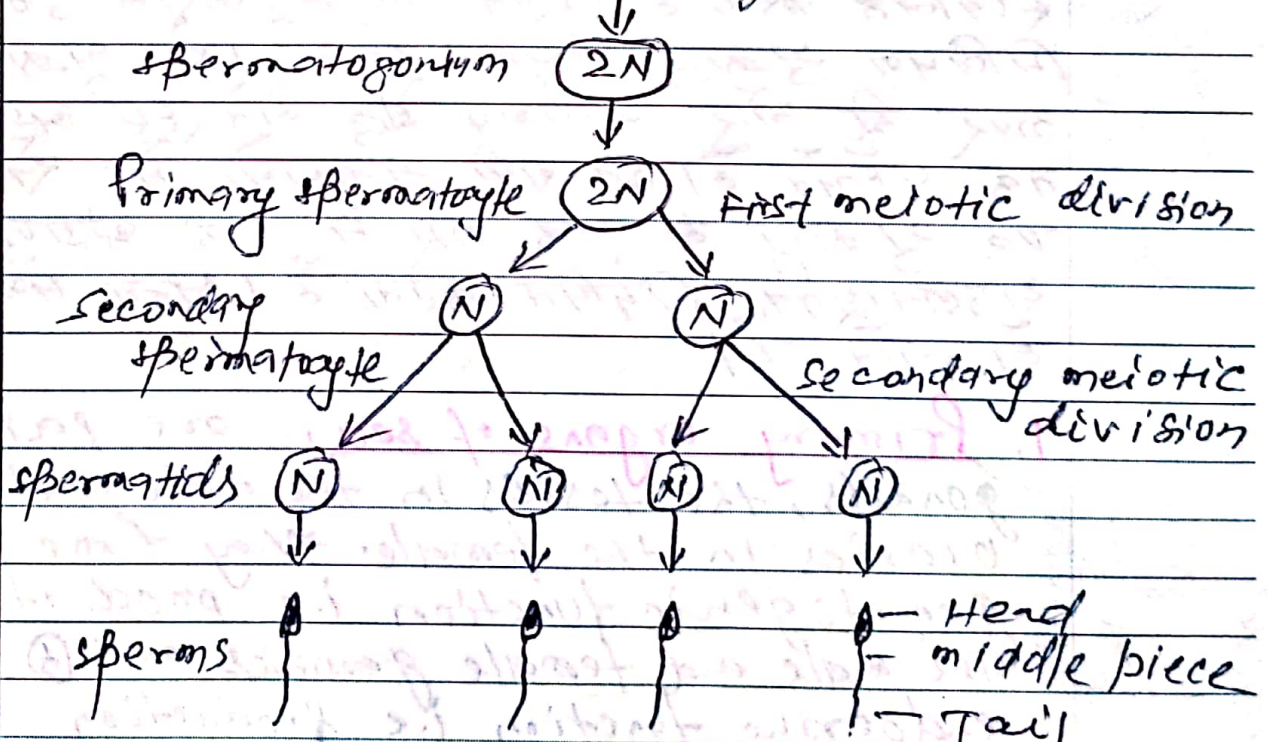 spermatogonium 2N
Primary spermatocyte 2N First meiotic division
N N
secondary
spermatocyte
secondary meiotic
division
spermatids N N N N
Head
sperms middle piece
Tail